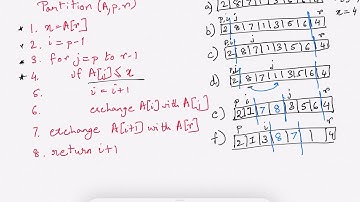 Partition (A, p, r)
* 1. x = A[r]
* 2. i = p-1
* 3. for j = p to r-1
* 4. if A[j] ≤ x
5. i = i+1
6. exchange A[i] with A[j]
7. exchange A[i+1] with A[r]
8. return i+1
a)
x = 4
p,i j r
b) 2 8 7 1 3 5 6 4
p,i j r
c) 2 8 7 1 3 5 6 4
p,i j r
d) 2 8 7 1 3 5 6 4
p i j r
e) 2 1 7 8 3 5 6 4
p i r
f) 2 1 3 8 7 1 4